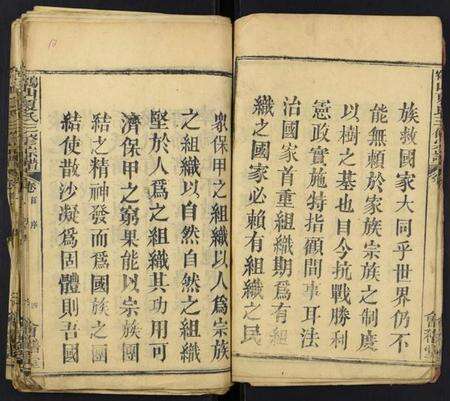 族救國家大同乎世界仍不
能無賴於家族宗族之制度
以樹之基也目今抗戰勝利
憲政實施特指顧間事耳法
治國家首重組織期爲有組
織之國家必賴有組織之民
眾保甲之組織以人爲宗族
之組織以自然自然之組織
堅於人爲之組織其功用可
濟保甲之窮果能以宗族團
結之精神發而爲國族之團
結使散沙凝爲固體則吾國
卷首 序